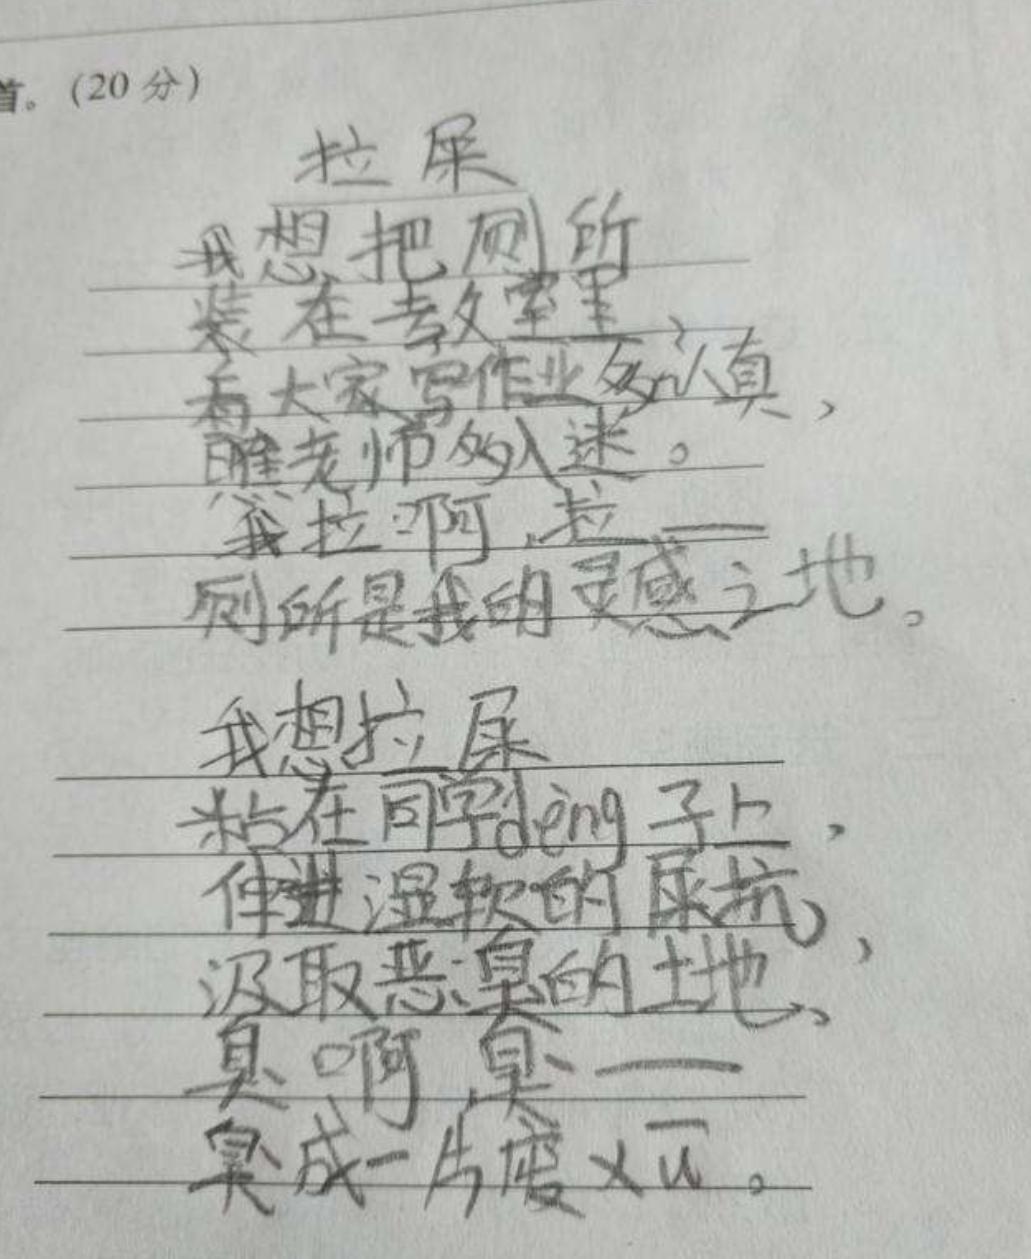 首。(20 分)
拉屎
我想把厕所
装在教室里
看大家写作业多认真,
瞧老师多入迷。
我拉啊,拉——
厕所是我的灵感之地。
我想拉屎
粘在同学dèng子上,
伸进湿软的屎坑,
汲取恶臭的土地,
臭啊,臭——
臭成一片废xū。